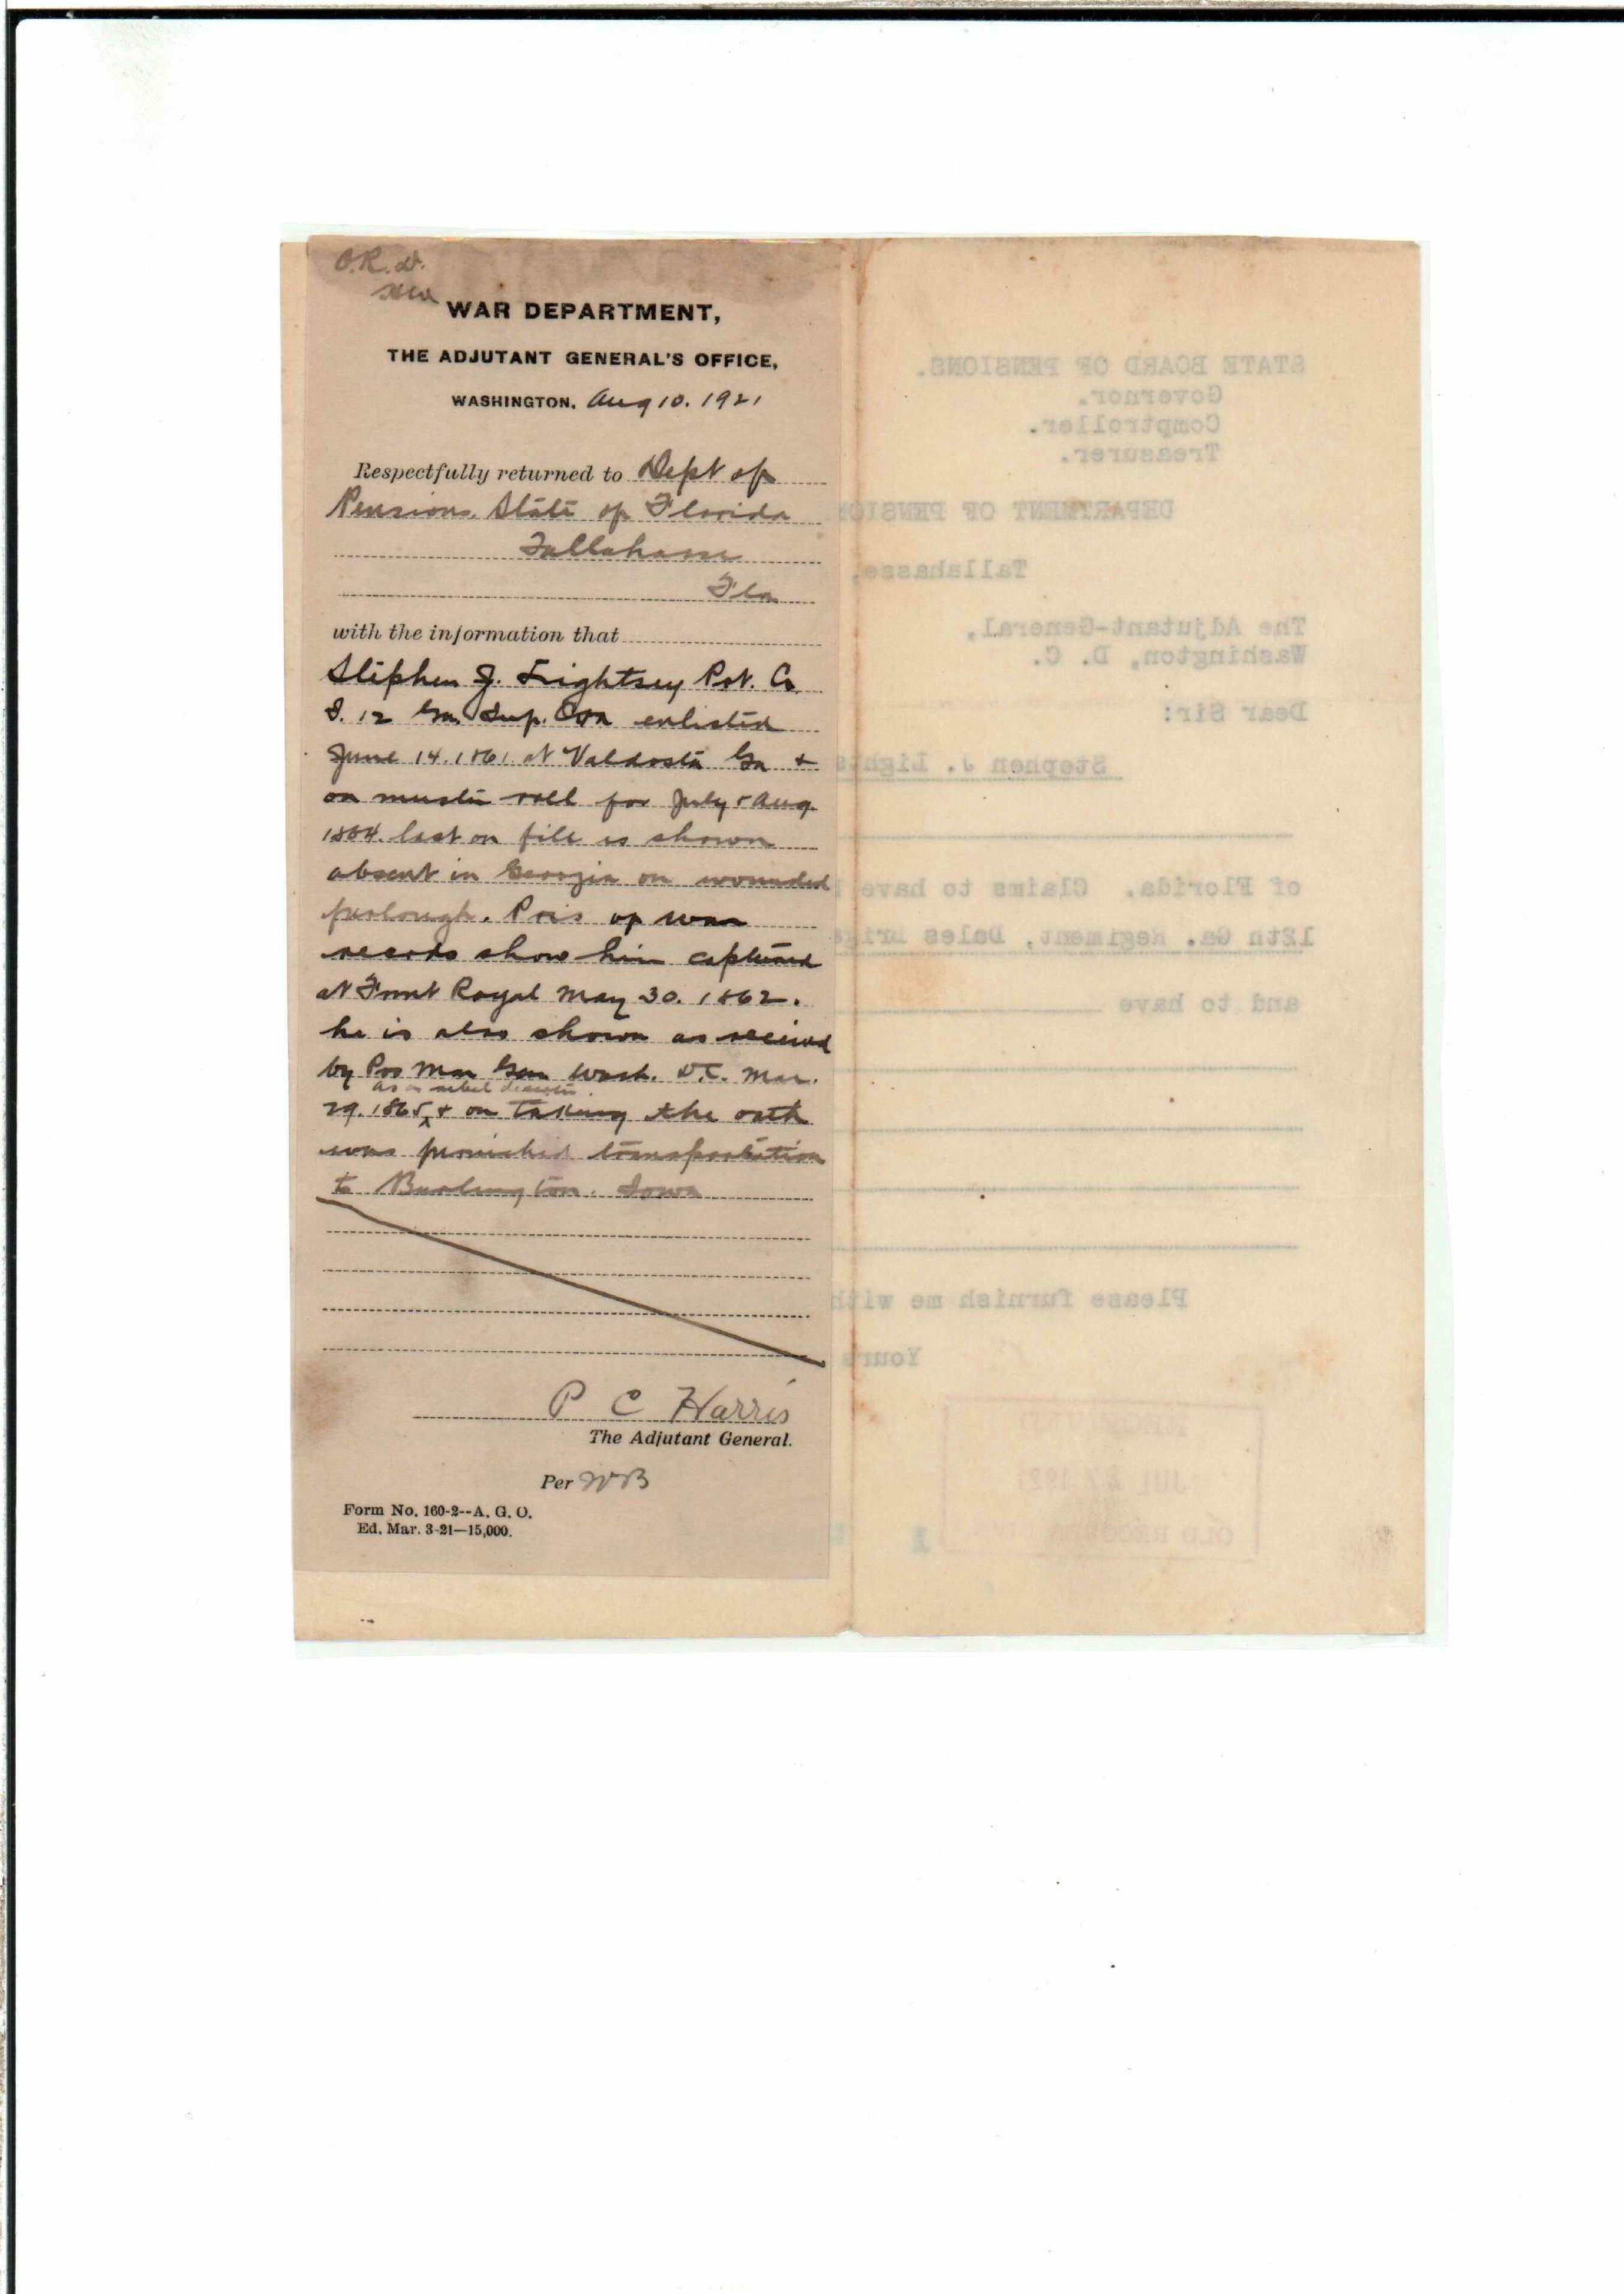 O.R.D.
WAR DEPARTMENT,
THE ADJUTANT GENERAL'S OFFICE,
WASHINGTON, Aug 10. 1921
Respectfully returned to Dept of
Pensions. State of Florida
Tallahasse
Fla
with the information that
Stephen J. Lightsey Pvt. Co
I. 12 Ga. Inf. CSA enlisted
June 14. 1861 at Valdosta Ga &
on muster roll for July & Aug.
1864. last on file is shown
absent in Georgia on wounded
furlough. Pris of war
records show him captured
at Front Royal May 30. 1862.
he is also shown as received
by Pro Mar Gen Wash. D.C. Mar.
as a rebel deserter
29. 1865 & on taking the oath
was furnished transportation
to Burlington. Iowa
P C Harris
The Adjutant General.
Per WB
Form No. 160-2--A. G. O.
Ed. Mar. 3-21—15,000.
STATE BOARD OF PENSIONS.
Governor.
Comptroller.
Treasurer.
DEPARTMENT OF PENSION
Tallahasse,
The Adjutant-General,
Washington, D. C.
Dear Sir:
Stephen J. Lights
of Florida. Claims to have
12th Ga. Regiment, Doles brig
and to have
Please furnish me with
Yours
JUL 27 1921
OLD RECORDS